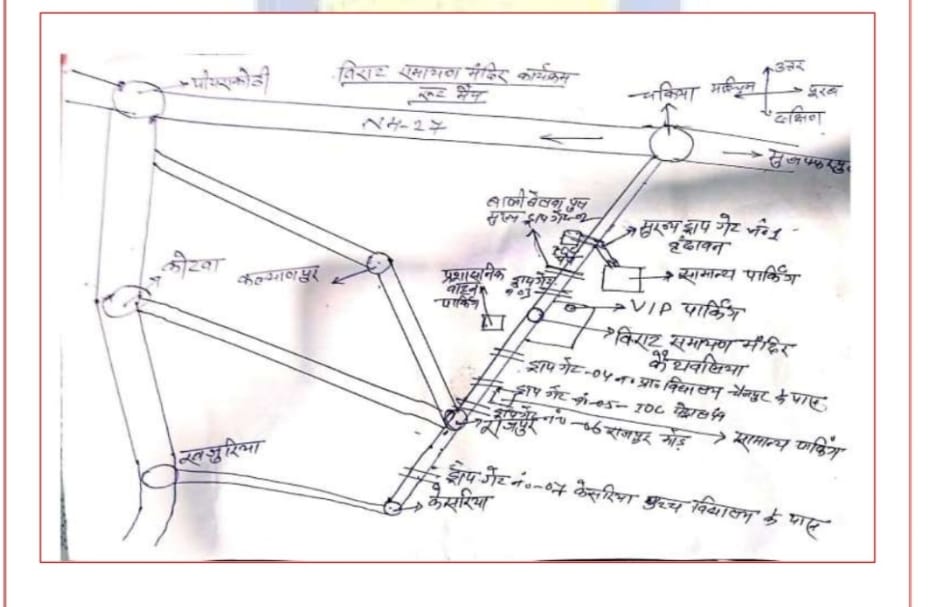 विराट रामायण मंदिर कार्यक्रम
रूट मैप
पीपराकोठी
NH-27
चकिया
उत्तर
पश्चिम
पूरब
दक्षिण
मुजफ्फरपुर
मुख्य ड्राप गेट नं०1
वृंदावन
सामान्य पार्किंग
कोटवा
कल्याणपुर
प्रशासनिक
वाहन
पार्किंग
ड्राप गेट
VIP पार्किंग
विराट रामायण मंदिर
कैथवलिया
ड्राप गेट-04 विद्यालय के पास
ड्राप गेट नं०-05- IOC
ड्राप गेट नं०-06 राजपुर मोड़
राजपुर
सामान्य पार्किंग
खजुरिया
ड्राप गेट नं०-07 केसरिया उच्च विद्यालय के पास
केसरिया